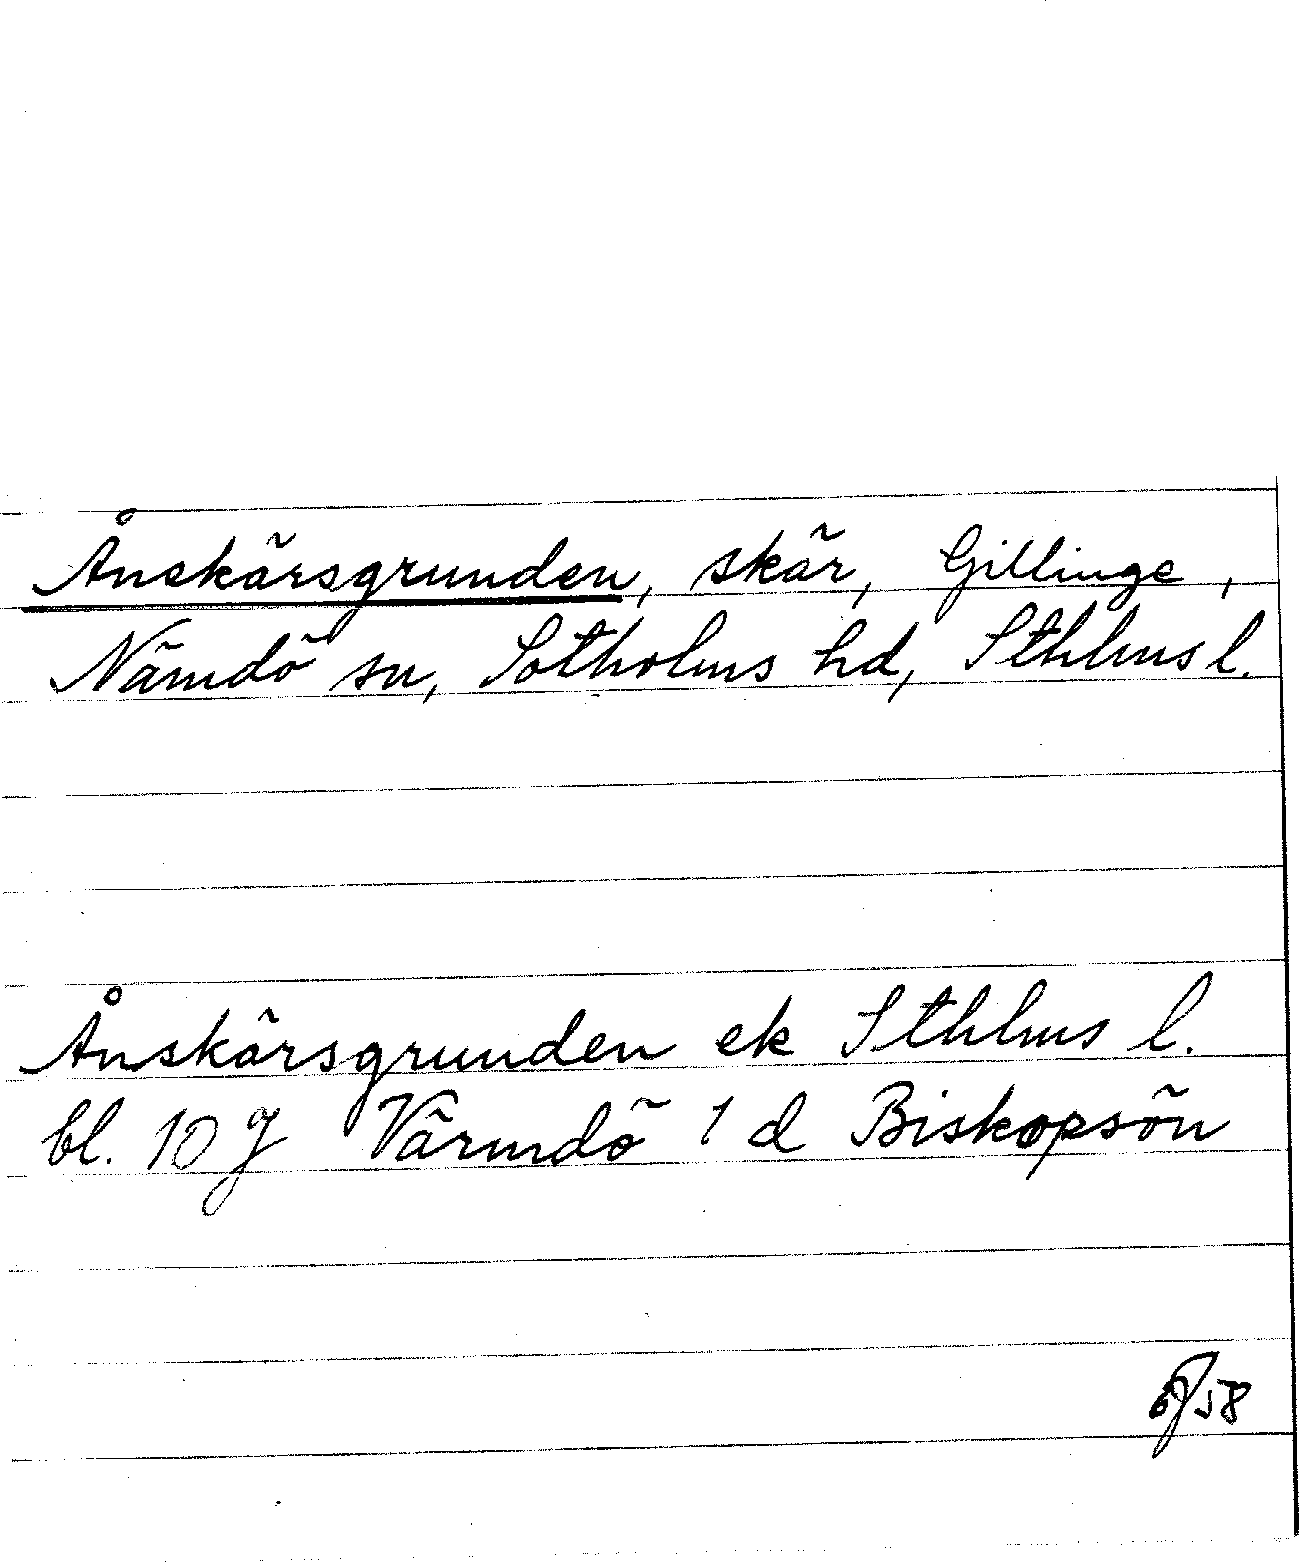 Ånskärsgrunden, skär, Gillinge,
Nämdö sn, Sotholms hd, Sthlms l.
Ånskärsgrunden ek Sthlms l.
bl. 10 J Värmdö 1 d Biskopsön
58